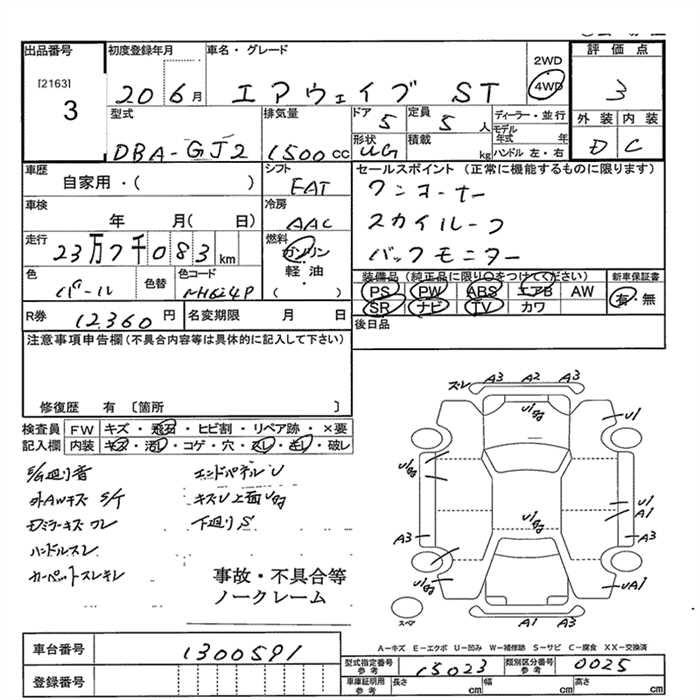 出品番号
[2163]
3
初度登録年月
20 6月
車名・グレード
エアウェイブ ST
2WD
4WD
評価点
3
外装 内装
D C
型式
DBA-GJ2
排気量
1500cc
ドア
5
形状
UG
定員
5人
積載
kg
ディーラー・並行
モデル年式 年
ハンドル 左・右
車歴
自家用・( )
シフト
FAT
車検
年 月( 日)
冷房
AAC
走行
23万7千083km
燃料
ガソリン
軽油・
( )
色
パール
色替
色コード
NH624P
セールスポイント (正常に機能するものに限ります)
ワンオーナー
スカイルーフ
バックモニター
装備品(純正品に限り○をつけてください)
PS PW ABS エアB AW
SR ナビ TV カワ
新車保証書
有・無
R券 12,360円
名変期限 月 日
後日品
注意事項申告欄(不具合内容等は具体的に記入して下さい)
修復歴 有 〔箇所 〕
検査員記入欄
FW キズ・飛石・ヒビ割・リペア跡・×要
内装 キズ・汚レ・コゲ・穴・スレ・キレ・破レ
E/G廻り音
外AWキズ S/T
Dミラーキズ ワレ
ハンドルスレ
カーペットスレキレ
エンドパネルU
キズU上面Uｶｶﾞ
下廻りS
事故・不具合等
ノークレーム
ズレ A3 A2 A3
U1
U1
A1
A3
A3
UA1
A1 A3
スペア
A-キズ E-エクボ U-凹み W-補修跡 S-サビ C-腐食 XX-交換済
車台番号 1300591
登録番号
型式指定番号 参考 15023
類別区分番号 参考 0025
車庫証明用 参考 長さ cm 幅 cm 高さ cm